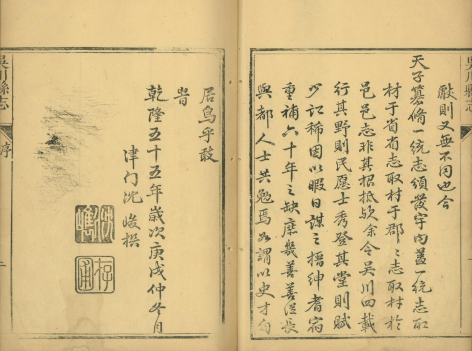 獻則又無不同也今
天子纂脩一統志頒發宇內蓋一統志取
材于省省志取材于郡〻志取材於
邑邑志非其根柢歟余令吳川四載
行其野則民愿士秀登其堂則賦
少訟稀因以暇日謀之搢紳耆宿
重補六十年之缺庶幾善善從長
與都人士共勉焉如謂以史才自
吳川縣志
序
居烏乎敢
旹
乾隆五十五年歲次庚戌仲冬月
津門沈峻撰